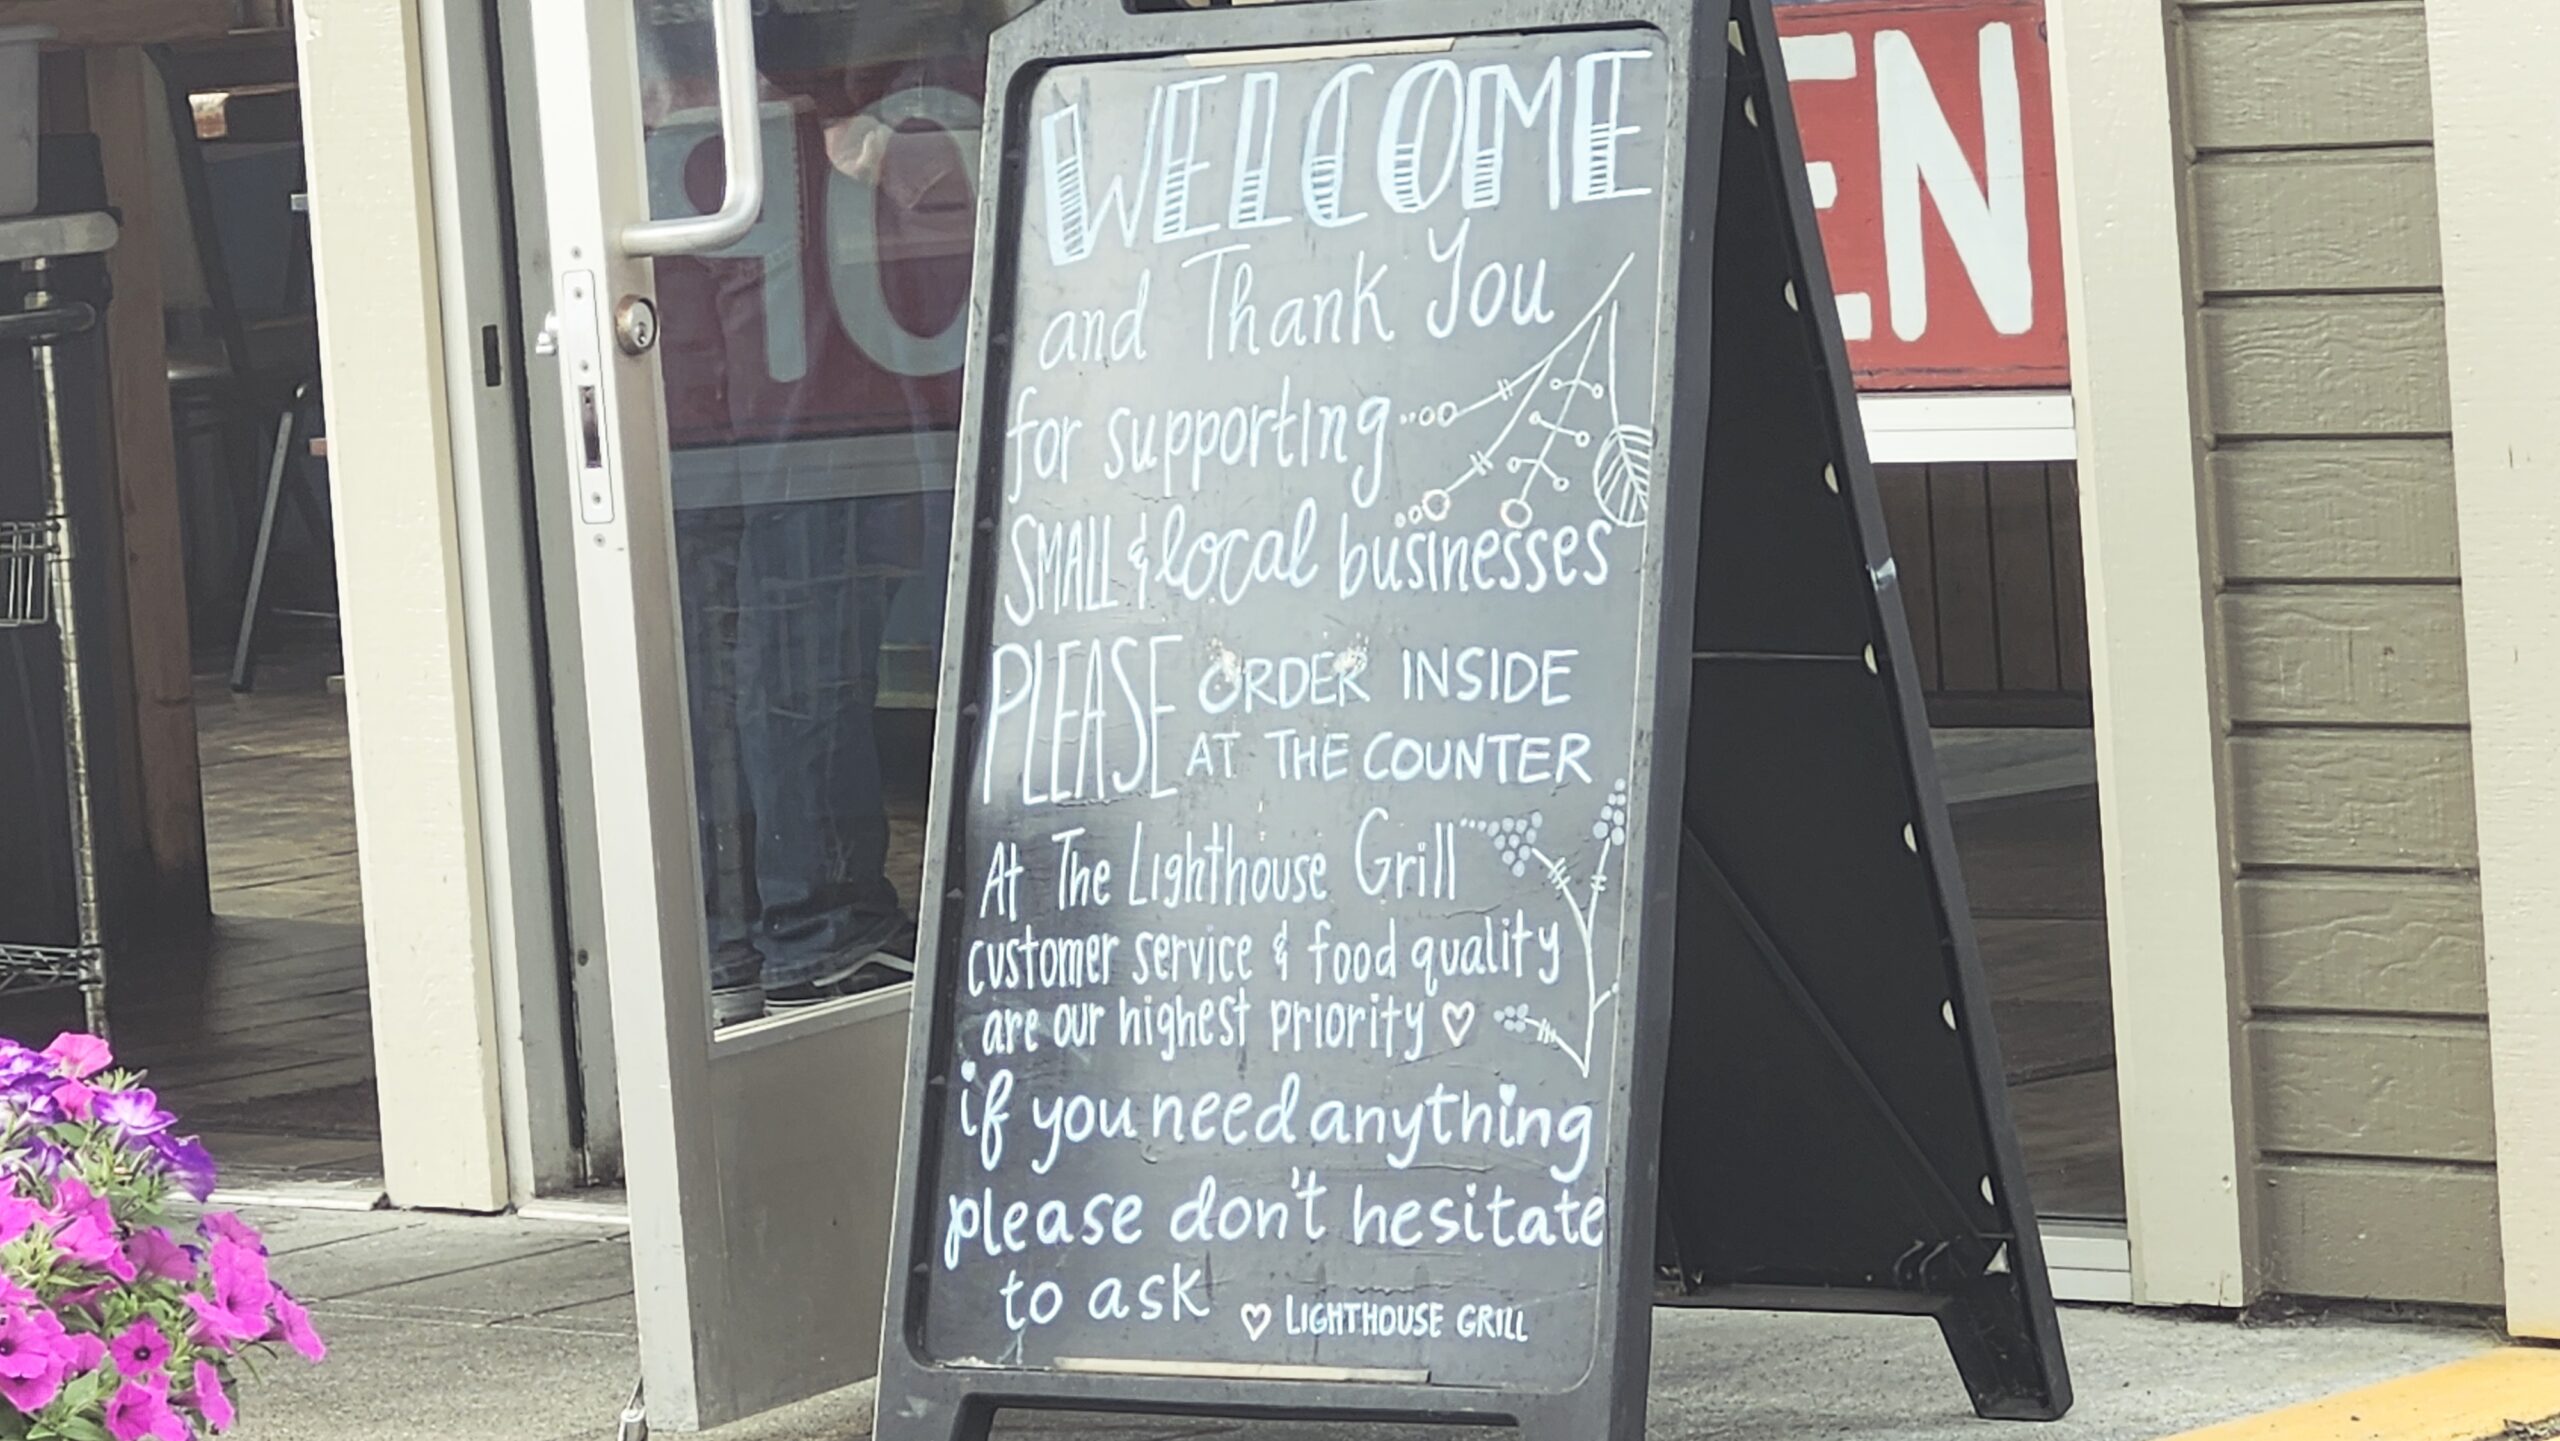 WELCOME
and Thank You
for supporting
SMALL & local businesses
PLEASE ORDER INSIDE
AT THE COUNTER
At The Lighthouse Grill
customer service & food quality
are our highest priority ♡
if you need anything
please don't hesitate
to ask ♡ LIGHTHOUSE GRILL
OP
EN